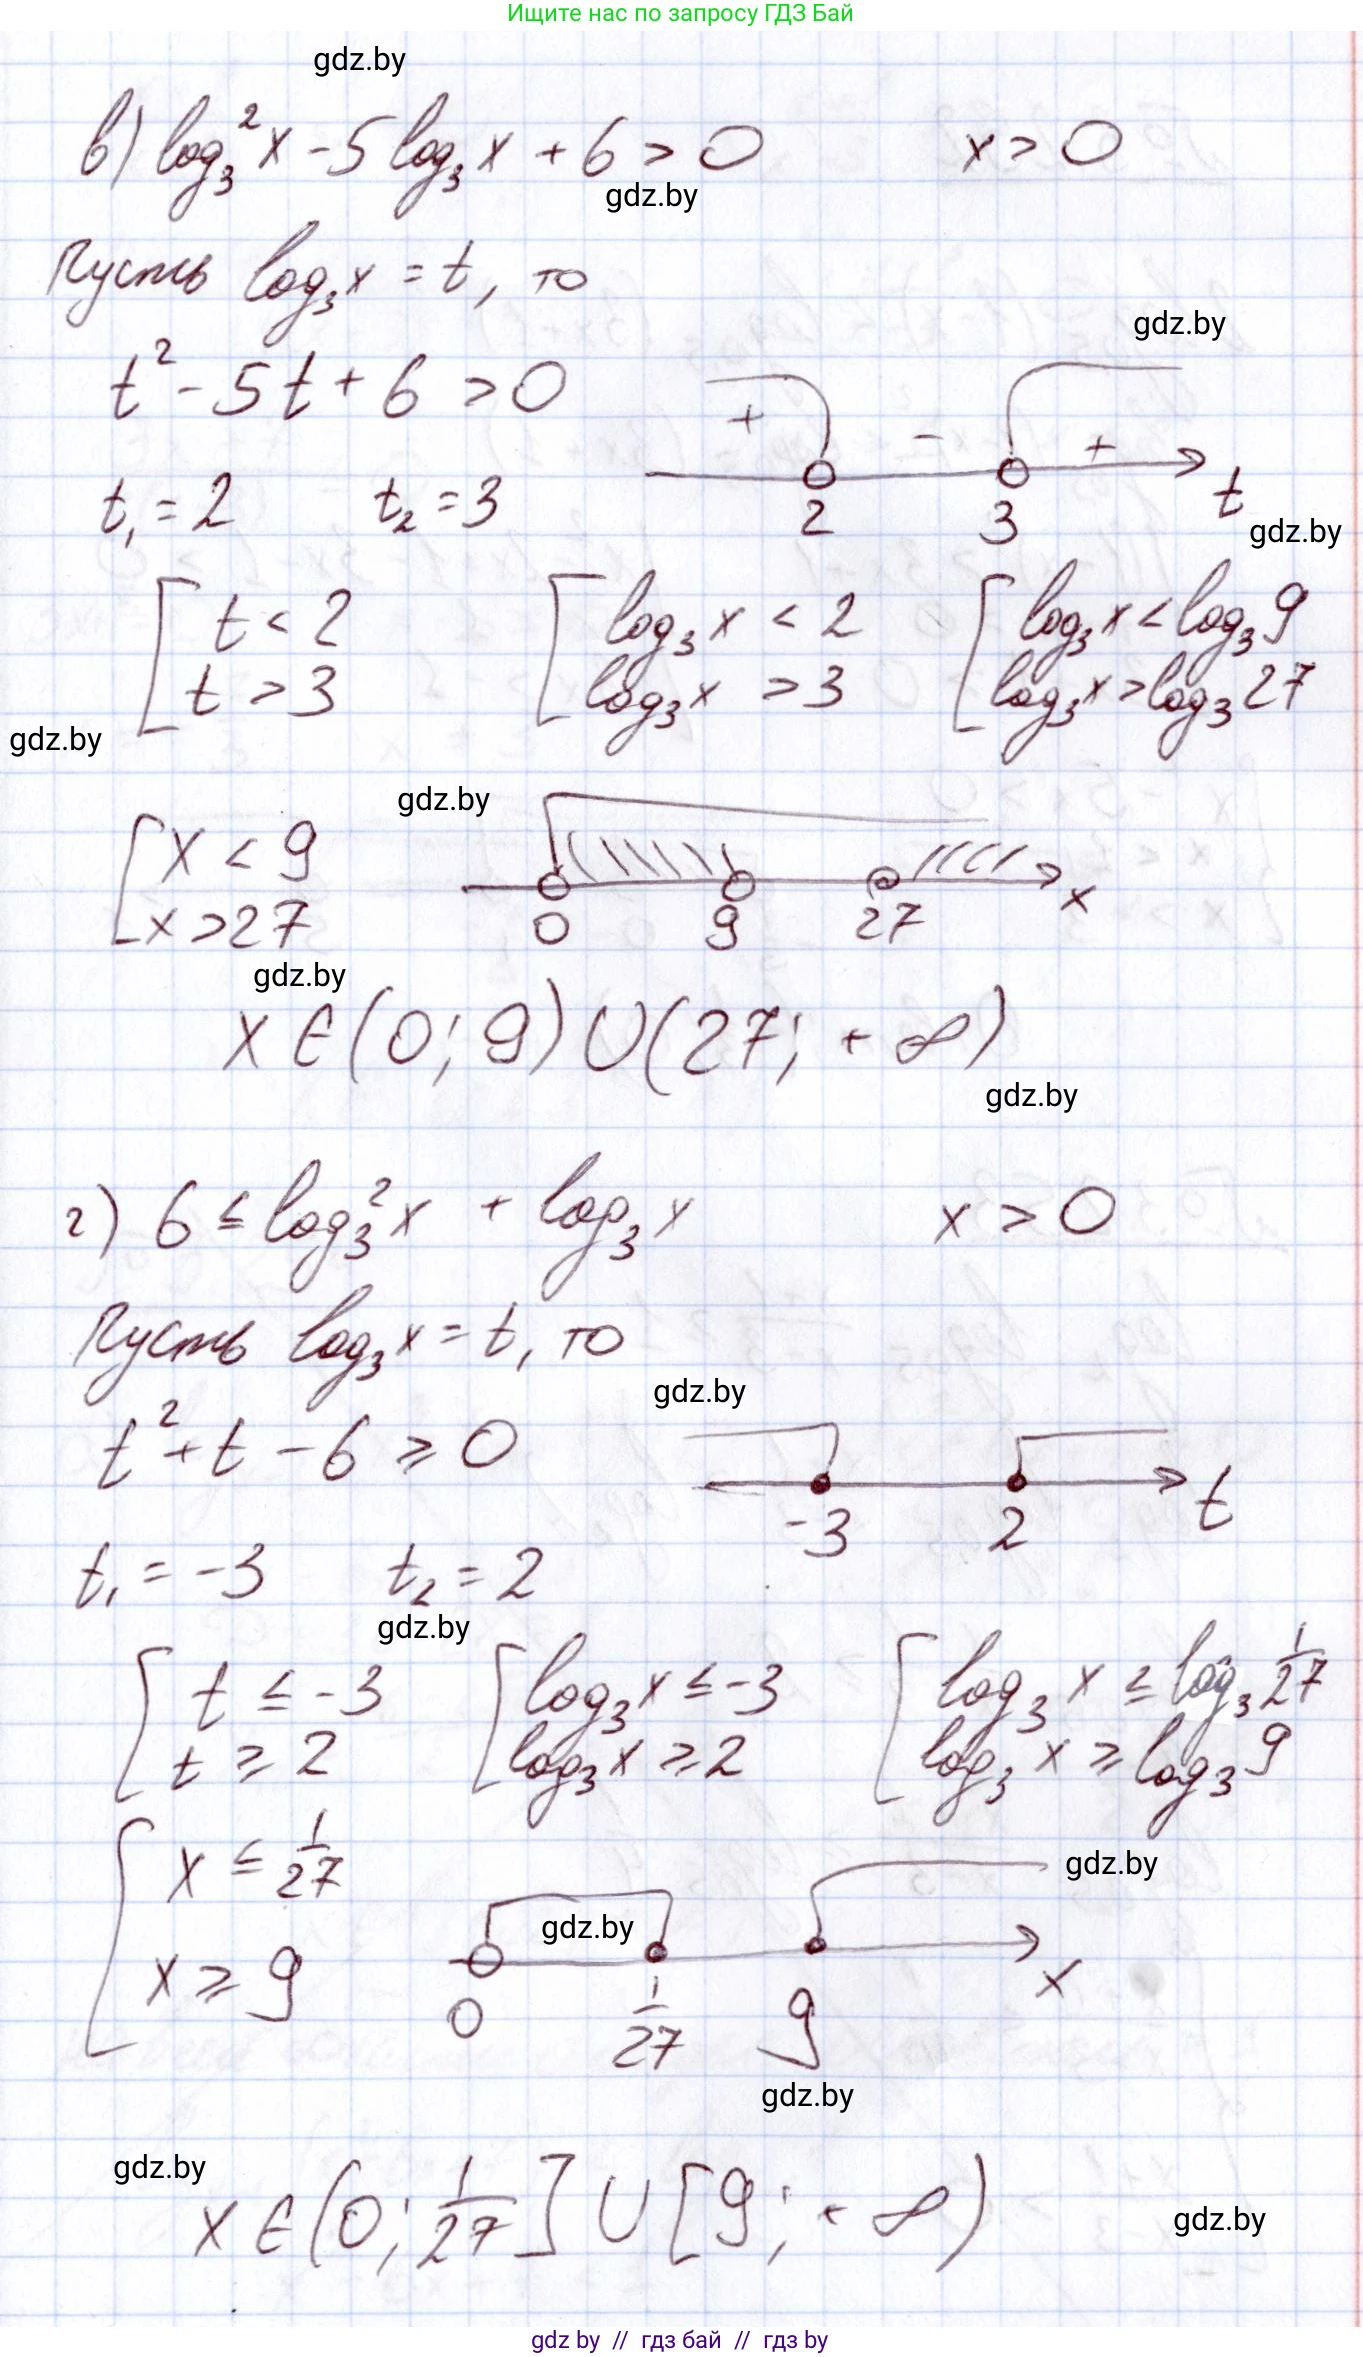 Ищите нас по запросу ГДЗ Бай
gdz.by
в) log₃²x - 5 log₃x + 6 > 0    x > 0
gdz.by
Пусть log₃x = t, то
gdz.by
t² - 5t + 6 > 0
+ - +
t₁ = 2    t₂ = 3
2 3 t
gdz.by
[ t < 2    [ log₃x < 2    [ log₃x < log₃9
t > 3    log₃x > 3    log₃x > log₃27
gdz.by
gdz.by
[ x < 9
x > 27
0 9 27 x
gdz.by
x ∈ (0; 9) ∪ (27; +∞)
gdz.by
г) 6 ≤ log₃²x + log₃x    x > 0
Пусть log₃x = t, то
gdz.by
t² + t - 6 ≥ 0
-3 2 t
t₁ = -3    t₂ = 2
gdz.by
[ t ≤ -3    [ log₃x ≤ -3    [ log₃x ≤ log₃ 1/27
t ≥ 2    log₃x ≥ 2    log₃x ≥ log₃9
[ x ≤ 1/27
gdz.by
gdz.by
x ≥ 9
0 1/27 9 x
gdz.by
gdz.by
x ∈ (0; 1/27] ∪ [9; +∞)
gdz.by
gdz by // гдз бай // гдз by